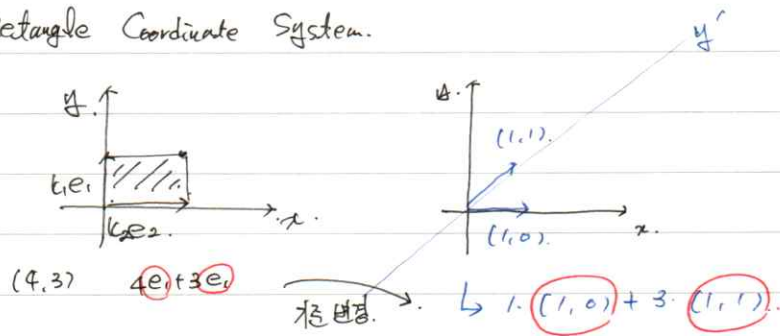 ectangle Coordinate System.
y.
k₁e₁
k₂e₂.
x.
y.
y'
(1,1).
(1,0).
x.
(4,3) 4e₁+3e₁ 기준 변경. ↳ 1·(1,0) + 3·(1,1).